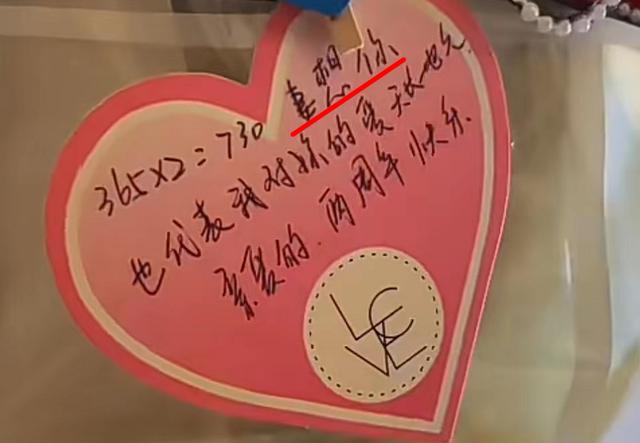 365×2=730 想你
也代表我对你的爱天长地久
亲爱的.两周年快乐
LOVE